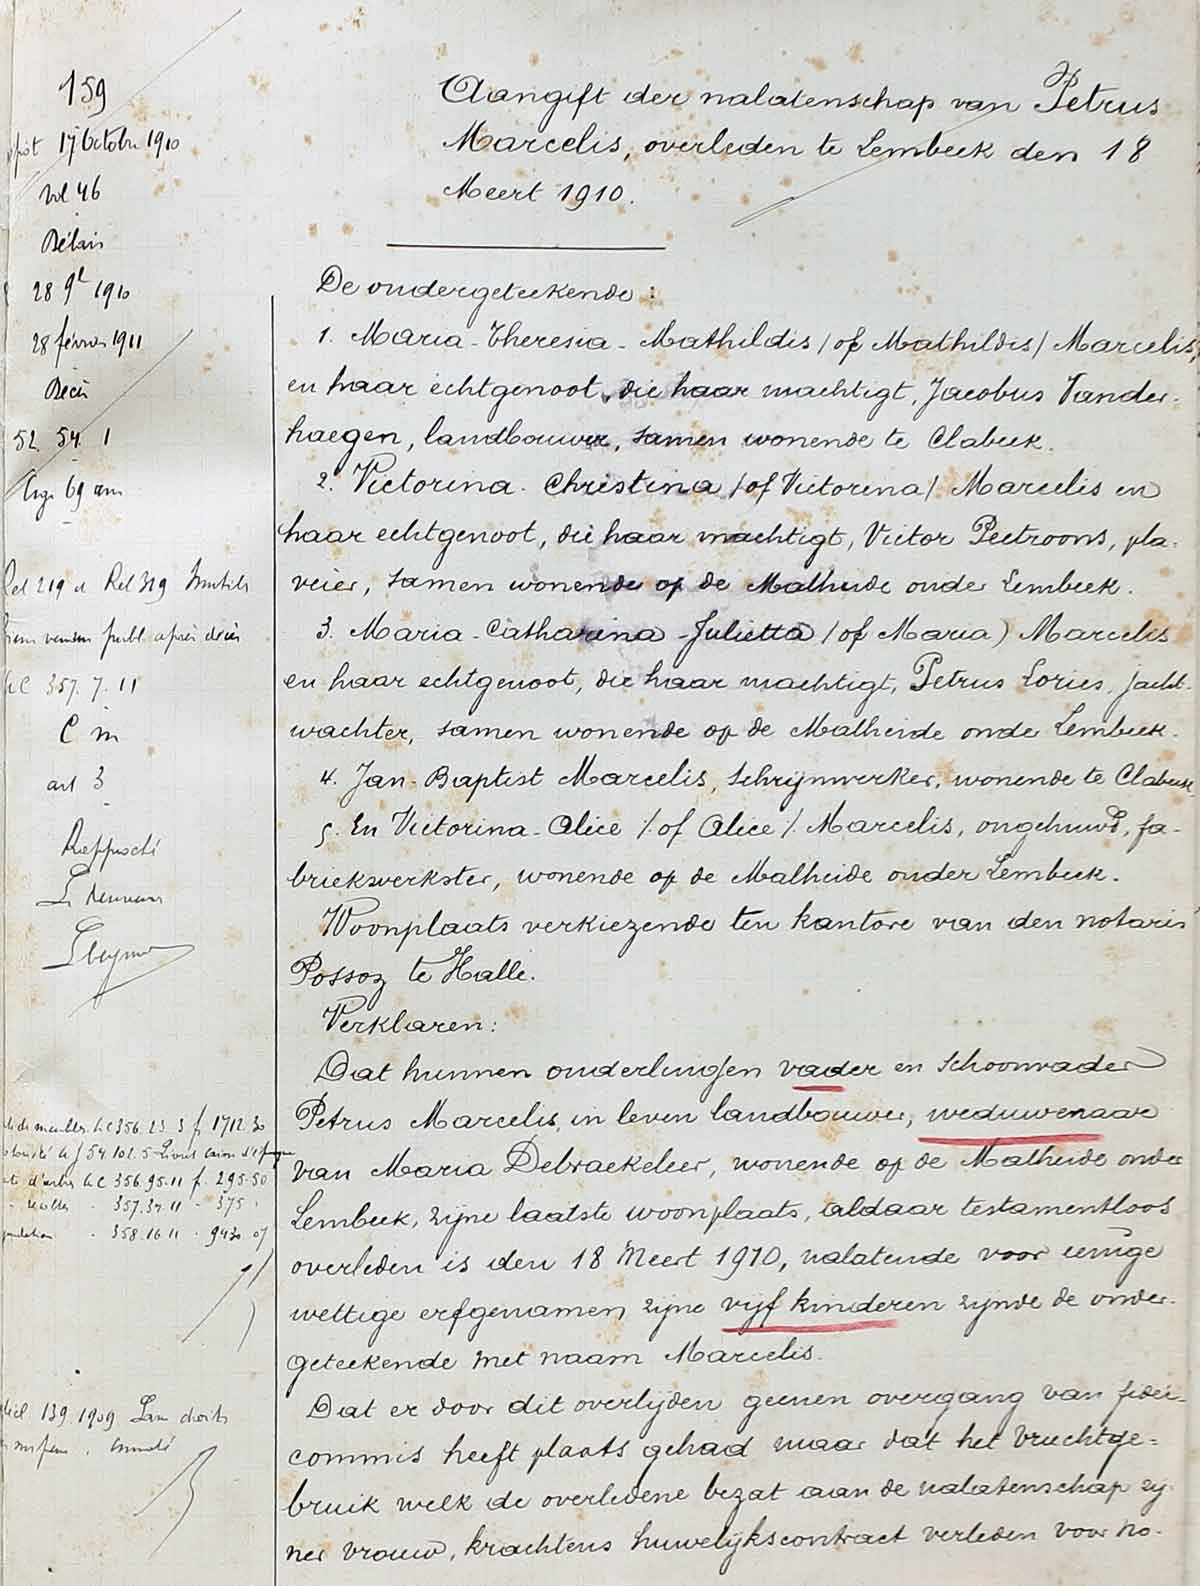 159
17 Octobre 1910
vol 46
Délais
28 9l 1910
28 février 1911
Décès
52. 54. 1
69 ans
Rel 219 et Rel 319 Inutiles
publ. après décès
357. 7. 11
C m
art 3
Aangift der nalatenschap van Petrus
Marcelis, overleden te Lembeek den 18
Meert 1910.
De ondergeteekende:
1. Maria-Theresia-Mathildis / of Mathildis / Marcelis,
en haar echtgenoot, die haar machtigt, Jacobus Vander-
haegen, landbouwer, samen wonende te Clabeek.
2. Victorina-Christina / of Victorina / Marcelis en
haar echtgenoot, die haar machtigt, Victor Peetroons, pla-
veier, samen wonende op de Malheide onder Lembeek.
3. Maria-Catharina-Julietta / of Maria) Marcelis
en haar echtgenoot, die haar machtigt, Petrus Lories, jacht-
wachter, samen wonende op de Malheide onder Lembeek.
4. Jan-Baptist Marcelis, schrijnwerker, wonende te Clabeek.
5. En Victorina-Alice /. of Alice /. Marcelis, ongehuwd, fa-
briekswerkster, wonende op de Malheide onder Lembeek.
Woonplaats verkiezende ten kantore van den notaris
Possoz te Halle.
Verklaren:
Dat hunnen onderlingen vader en schoonvader
Petrus Marcelis, in leven landbouwer, weduwenaar
van Maria Debraekeleer, wonende op de Malheide onder
Lembeek, zijne laatste woonplaats, aldaar testamentloos
overleden is den 18 Meert 1910, nalatende voor eenige
wettige erfgenamen, zijne vijf kinderen zijnde de onder-
geteekende met naam Marcelis.
Dat er door dit overlijden geenen overgang van fidei-
commis heeft plaats gehad maar dat het vruchtge-
bruik welk de overledene bezat aan de nalatenschap zij-
ner vrouw, krachtens huwelijkscontract verleden voor no-
356. 23. 3 f 1712.30
54. 101. 5
356. 95. 11 f. 295.50
357. 34. 11 - 375
358. 16. 11 - 9430.07
139. 1909